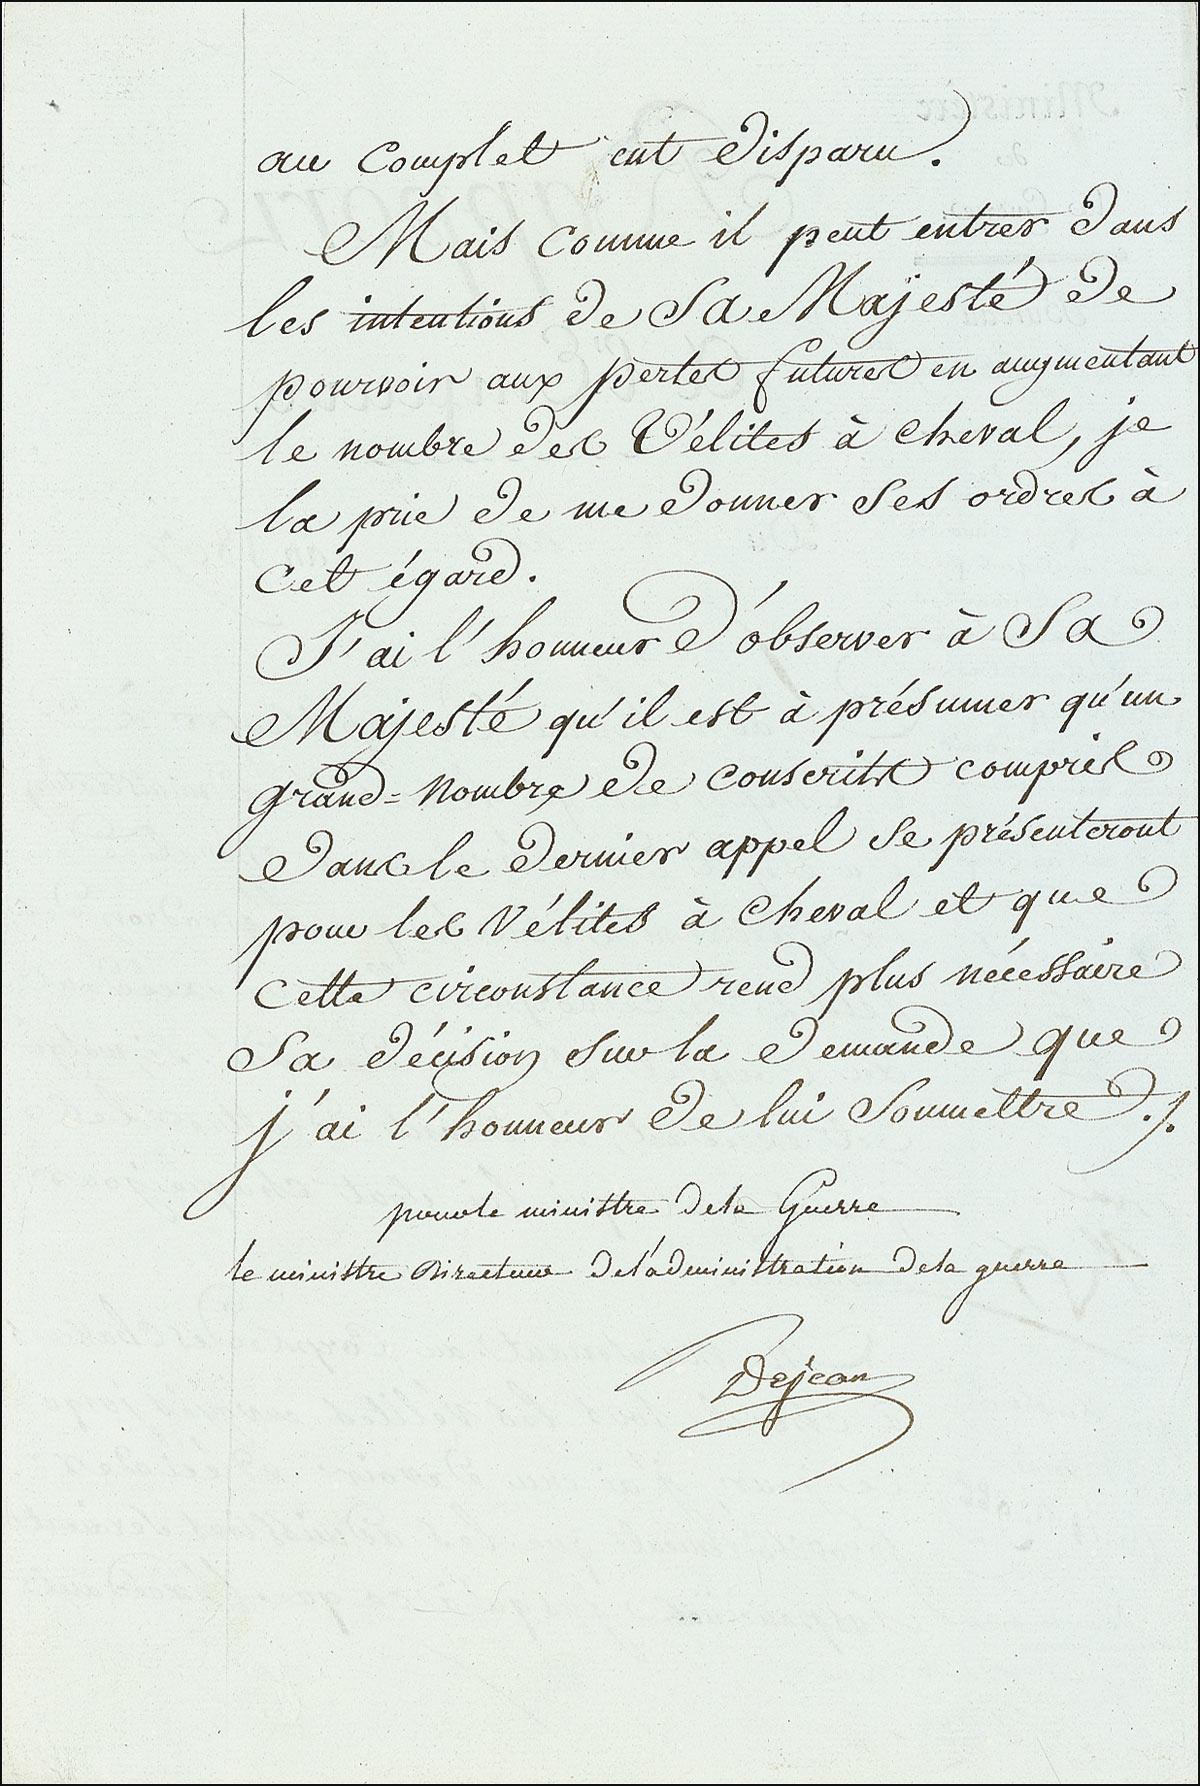 au complet eut disparu.
Mais comme il peut entrer dans
les intentions de Sa Majesté de
pourvoir aux pertes futures en augmentant
le nombre des Vélites à cheval, je
la prie de me donner ses ordres à
cet égard.
J'ai l'honneur d'observer à Sa
Majesté qu'il est à présumer qu'un
grand=nombre de conscrits compris
dans le dernier appel se présenteront
pour les Vélites à cheval et que
cette circonstance rend plus nécessaire
sa décision sur la demande que
j'ai l'honneur de lui soumettre ./.
pour le ministre de la Guerre
le ministre Directeur de l'administration de la guerre
Dejean